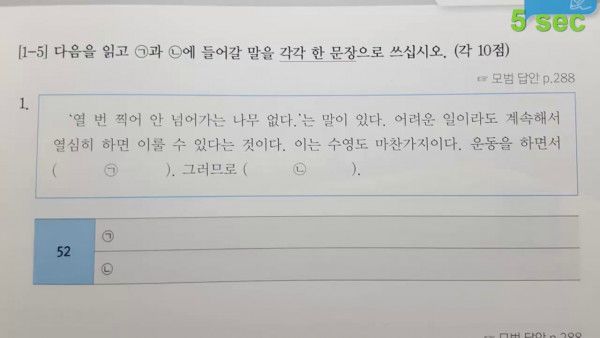 5 sec
[1-5] 다음을 읽고 ㉠과 ㉡에 들어갈 말을 각각 한 문장으로 쓰십시오. (각 10점)
☞ 모범 답안 p.288
1.
'열 번 찍어 안 넘어가는 나무 없다.'는 말이 있다. 어려운 일이라도 계속해서
열심히 하면 이룰 수 있다는 것이다. 이는 수영도 마찬가지이다. 운동을 하면서
( ㉠ ). 그러므로 ( ㉡ ).
52
㉠
㉡
☞ 모범 답안 p.288